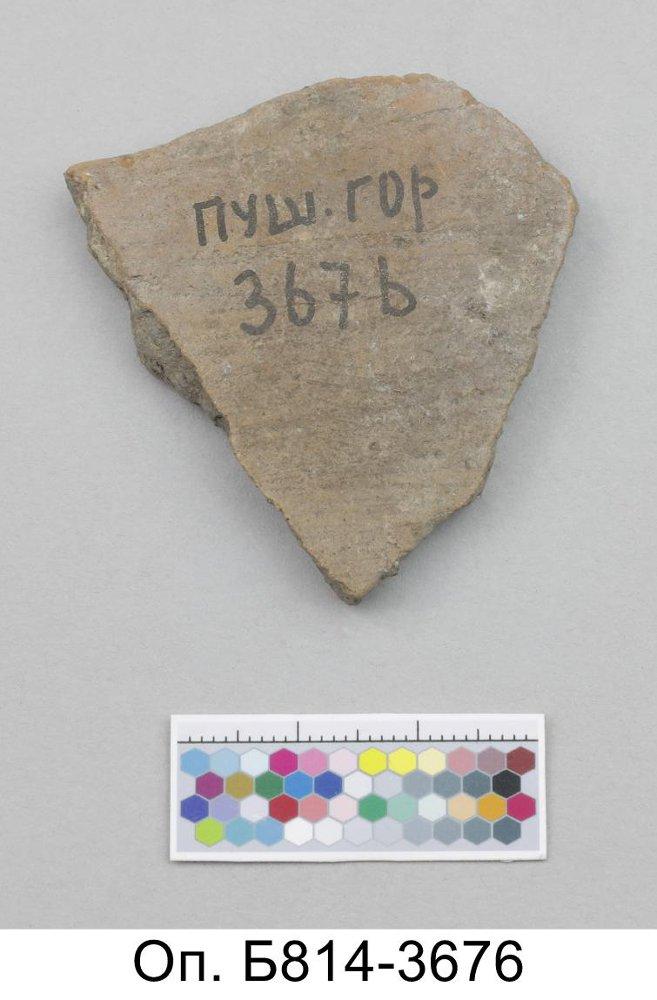 ПУШ.ГОР
3676
Оп. Б814-3676